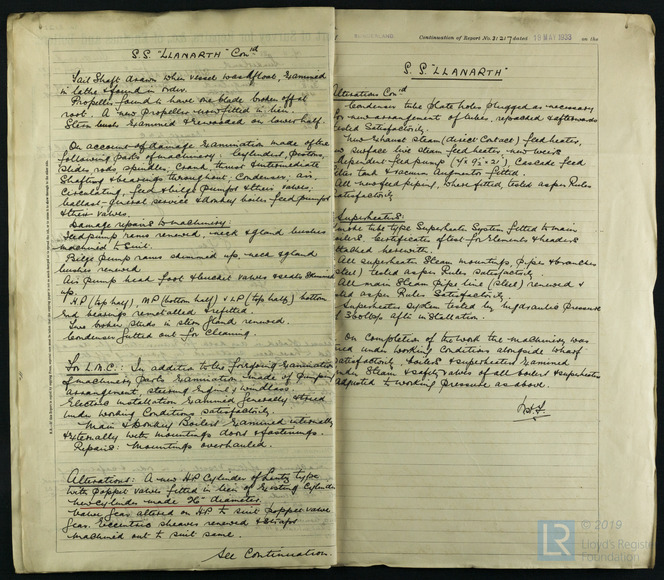 S.S. "LLANARTH" Con^td
Tail Shaft drawn when vessel was afloat, examined
in lathe & found in order.
Propeller found to have one blade broken off at
root. A new Propeller now fitted in lieu.
Stern bush examined & rewooded on lower half.
On account of damage examination made of the
following parts of machinery: Cylinders, pistons,
slides, rods, spindles, Crank, thrust & intermediate
Shafting & bearings throughout, Condenser, air,
Circulating, feed & bilge pumps & their valves.
ballast, general service & donkey boiler feed pumps
& their valves.
Damage repairs to machinery:
Feed pump rams renewed, neck & gland bushes
machined to suit.
Bilge pump rams skimmed up, neck & gland
bushes renewed
Air pump head, foot & bucket valves & seats skimmed
up.
HP (top half), MP (bottom half) & LP (top half) bottom
End bearings remetalled & refitted.
Two broken studs in stern gland renewed.
Condenser gutted out for cleaning.
For L.M.C.: In addition to the foregoing examination
of machinery parts examination made of pumping
arrangement, steering engine & windlass.
Electric installation examined generally & tried
under working conditions, satisfactorily.
Main & Donkey Boilers examined internally
& externally with mountings doors & fastenings.
Repairs: Mountings overhauled.
Alterations: A new HP Cylinder of Lentz type
with poppet valves fitted in lieu of existing Cylinder
new cylinder made 26" diameter.
Valve gear altered on HP to suit poppet valve
gear. Eccentric sheaves renewed & straps
machined out to suit same.
See Continuation
SUNDERLAND
Continuation of Report No. 31217 dated 18 MAY 1933 on the
S.S. "LLANARTH"
Alterations Con^td
Condenser tube plate holes plugged as necessary
for new arrangement of tubes, repacked & afterwards
tested satisfactorily.
New Exhaust steam (direct contact) feed heater,
new surface live steam feed heater, new weirs
independent feed pump (7" x 9½" x 21"), Cascade feed
filter tank & vacuum augmentor fitted.
All new feed piping, where fitted, tested as per Rules
satisfactorily.
Superheaters:
Smoke tube type Superheater System fitted to main
boilers. Certificates of test for Elements & headers
attached herewith.
All superheater Steam mountings, pipes & branches
(steel) tested as per Rules satisfactorily.
All main Steam pipe line (steel) renewed &
tested as per Rules satisfactorily.
Superheater system tested by hydraulic pressure
after installation.
On completion of the work the machinery was
tried under working conditions alongside wharf
satisfactorily. Boilers & superheaters examined
under Steam & safety valves of all boilers & superheaters
adjusted to working pressure as above.
© 2019
LR
Lloyd's Register
Foundation